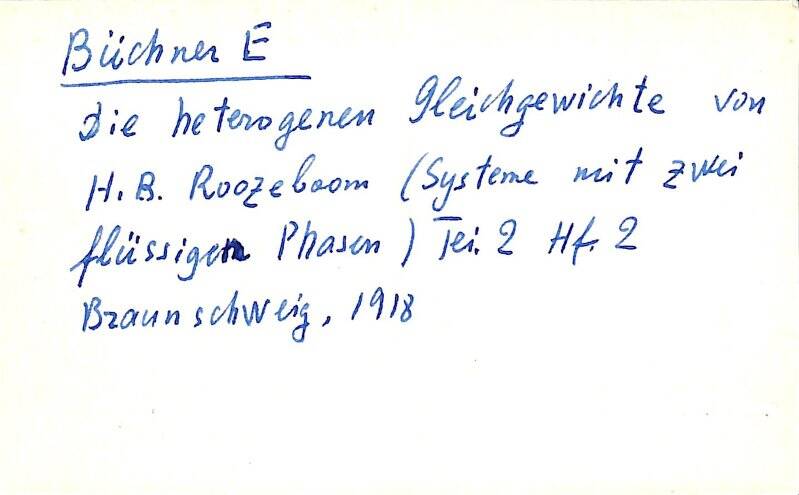 Büchner E
Die heterogenen Gleichgewichte von
H. B. Roozeboom (Systeme mit zwei
flüssigen Phasen) Tei. 2 Hf. 2
Braunschweig, 1918